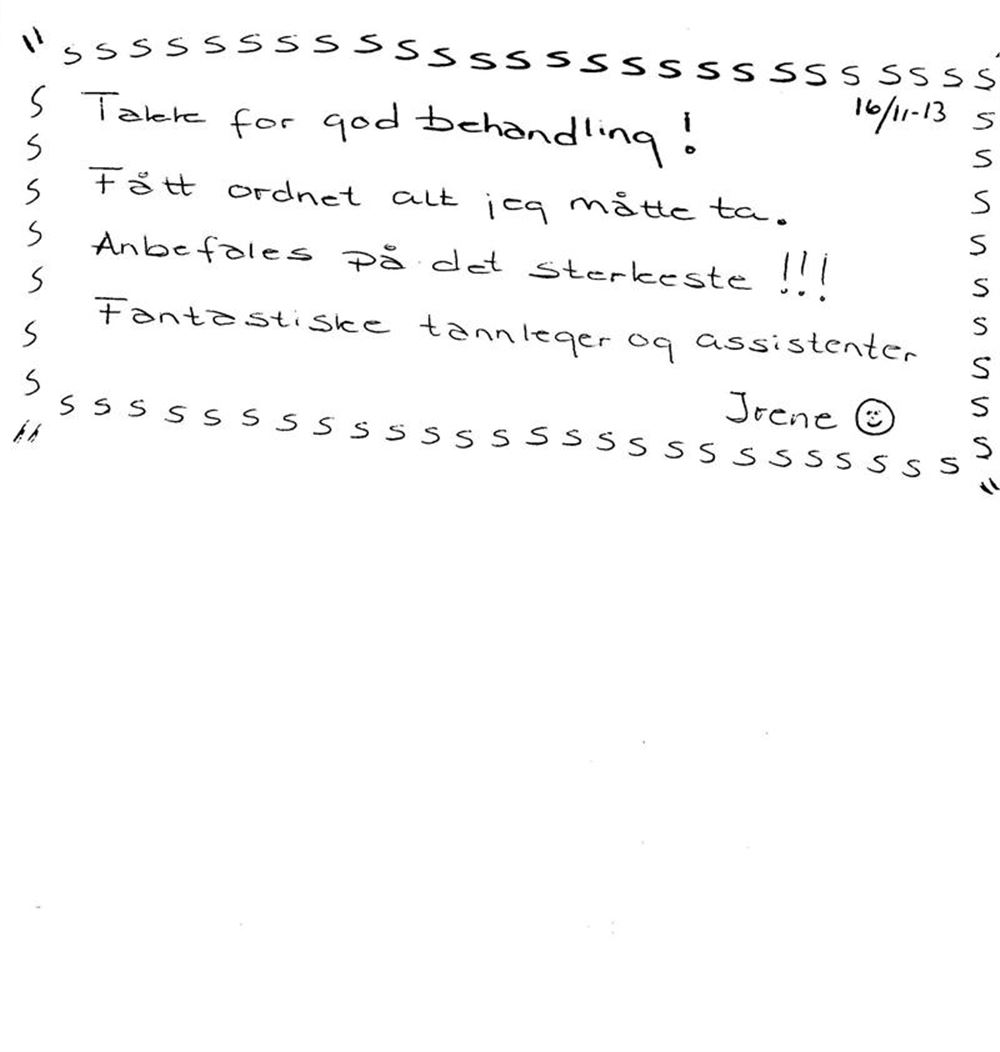 " S S S S S S S S S S S S S S S S S S S S S S S S S S
16/11-13
Takk for god behandling!
Fått ordnet alt jeg måtte ta.
Anbefales på det sterkeste !!!
Fantastiske tannleger og assistenter
Irene ☺
S S S S S S S S S S S S S S S S S S S S S S S S S S "